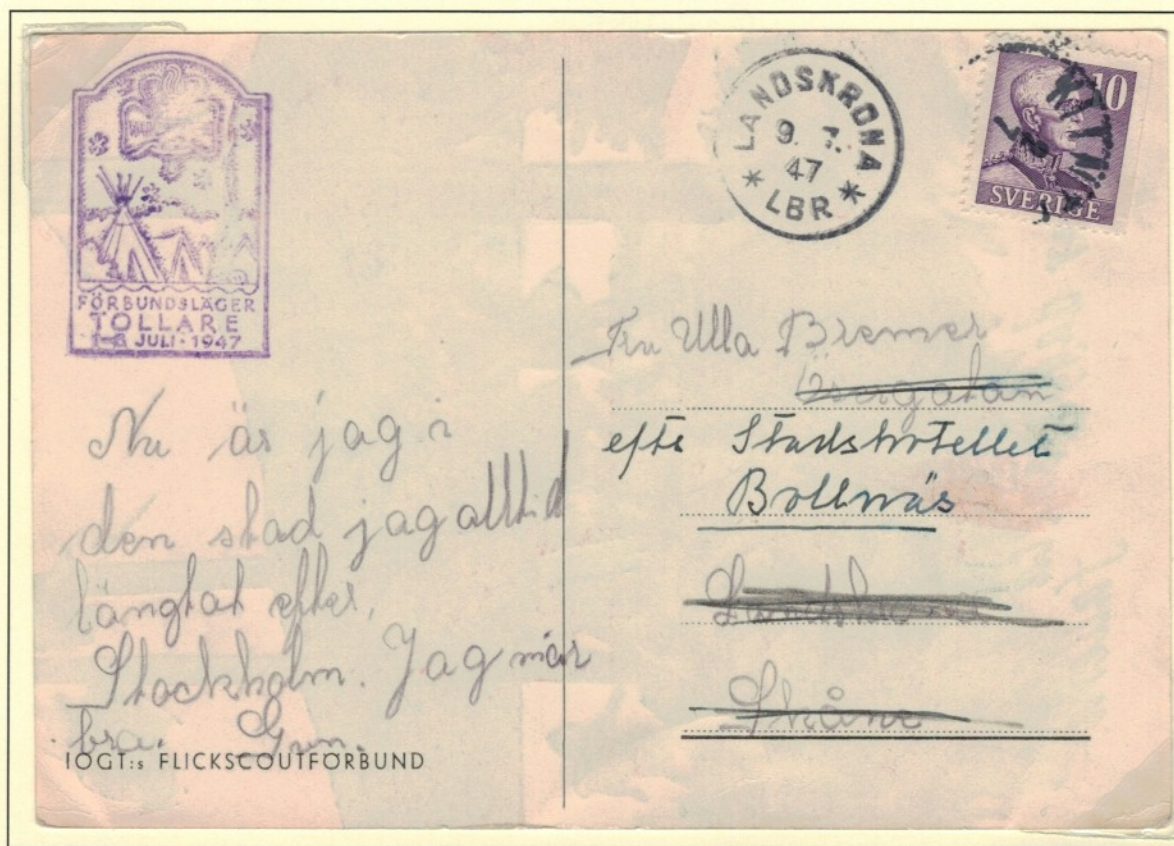 FÖRBUNDSLÄGER
TOLLARE
JULI · 1947
Nu är jag i
den stad jag alltid
längtat efter,
Stockholm. Jag mår
bra. Gun.
IOGT:s FLICKSCOUTFÖRBUND
LANDSKRONA
9. 7.
47
* LBR *
10
SVERIGE
Fru Ulla Bremer
efts Stadshotellet
Bollnäs
Skåne